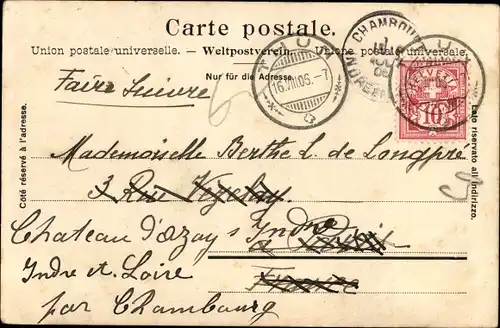 Carte postale.
Union postale universelle. – Weltpostverein. – Unione postale universale.
Nur für die Adresse.
Côté réservé à l'adresse.
Lato riservato all'indirizzo.
Faire Suivre
16.VIII.05.-7
CHAMBOU
INDRE-ET
HELVETIA
10
Mademoiselle Berthe L. de Longpré
3 Rue
Chateau d'Azay s/ Indre
Indre et Loire
par Chambourg